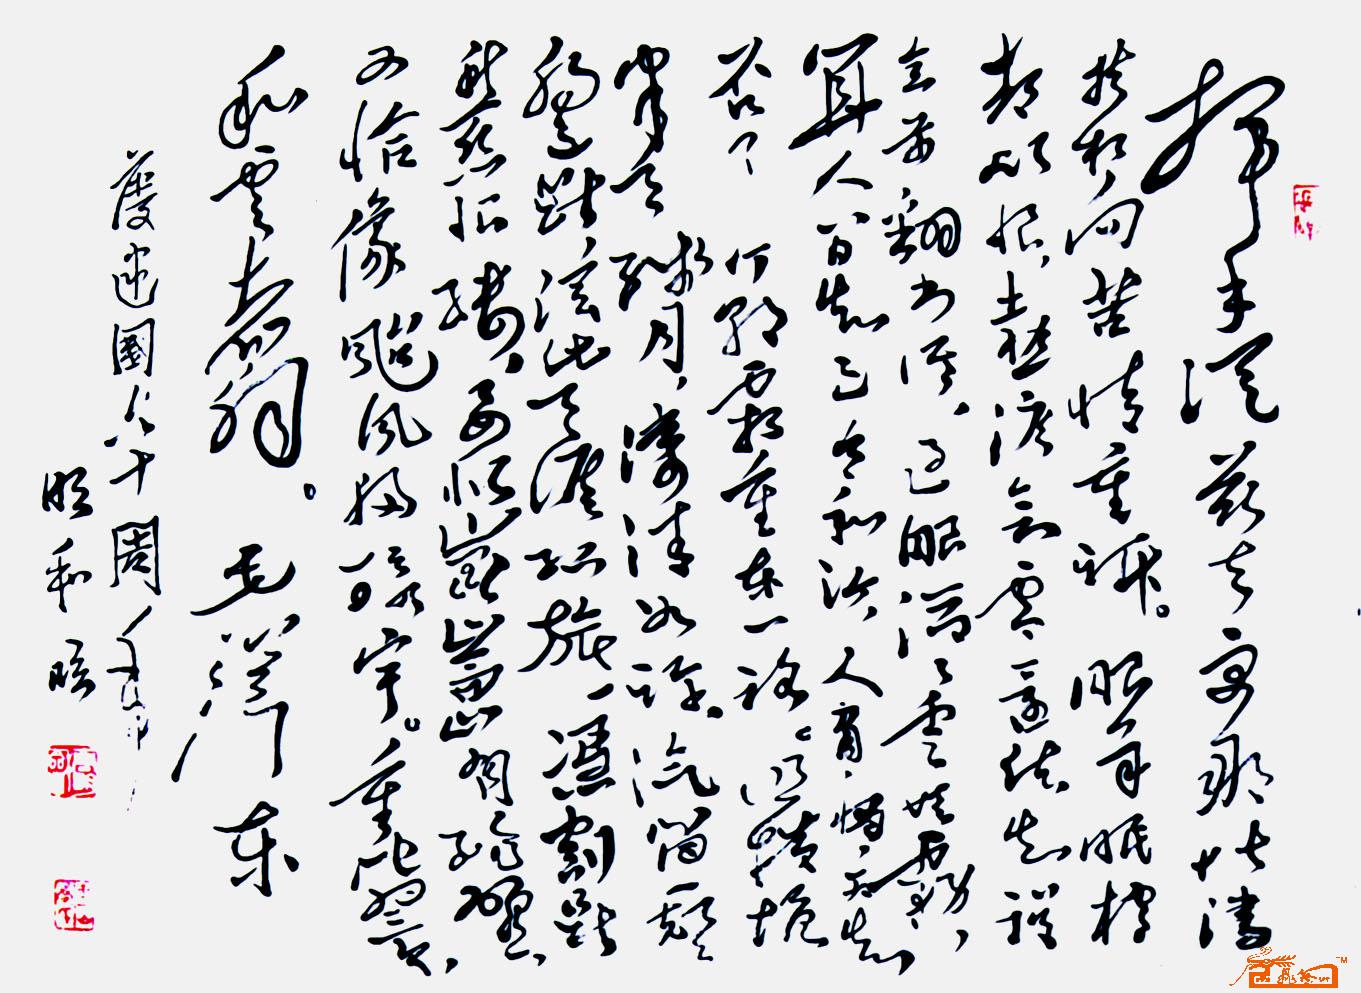 挥手从兹去更那堪凄
然相向苦情重诉。眼角眉梢
都似恨，热泪欲零还住知误
会前番书语，过眼滔滔云共雾，
算人间知己吾和汝，人有病，天知
否 今朝霜重东门路。照横塘
半天残月，凄清如许。汽笛一声
肠已断从此天涯孤旅 凭割断
愁丝恨缕，要似崑崙崩绝壁
又恰像飓风扫寰宇。重比翼，
和云翥。毛泽东
慶建國六十周年